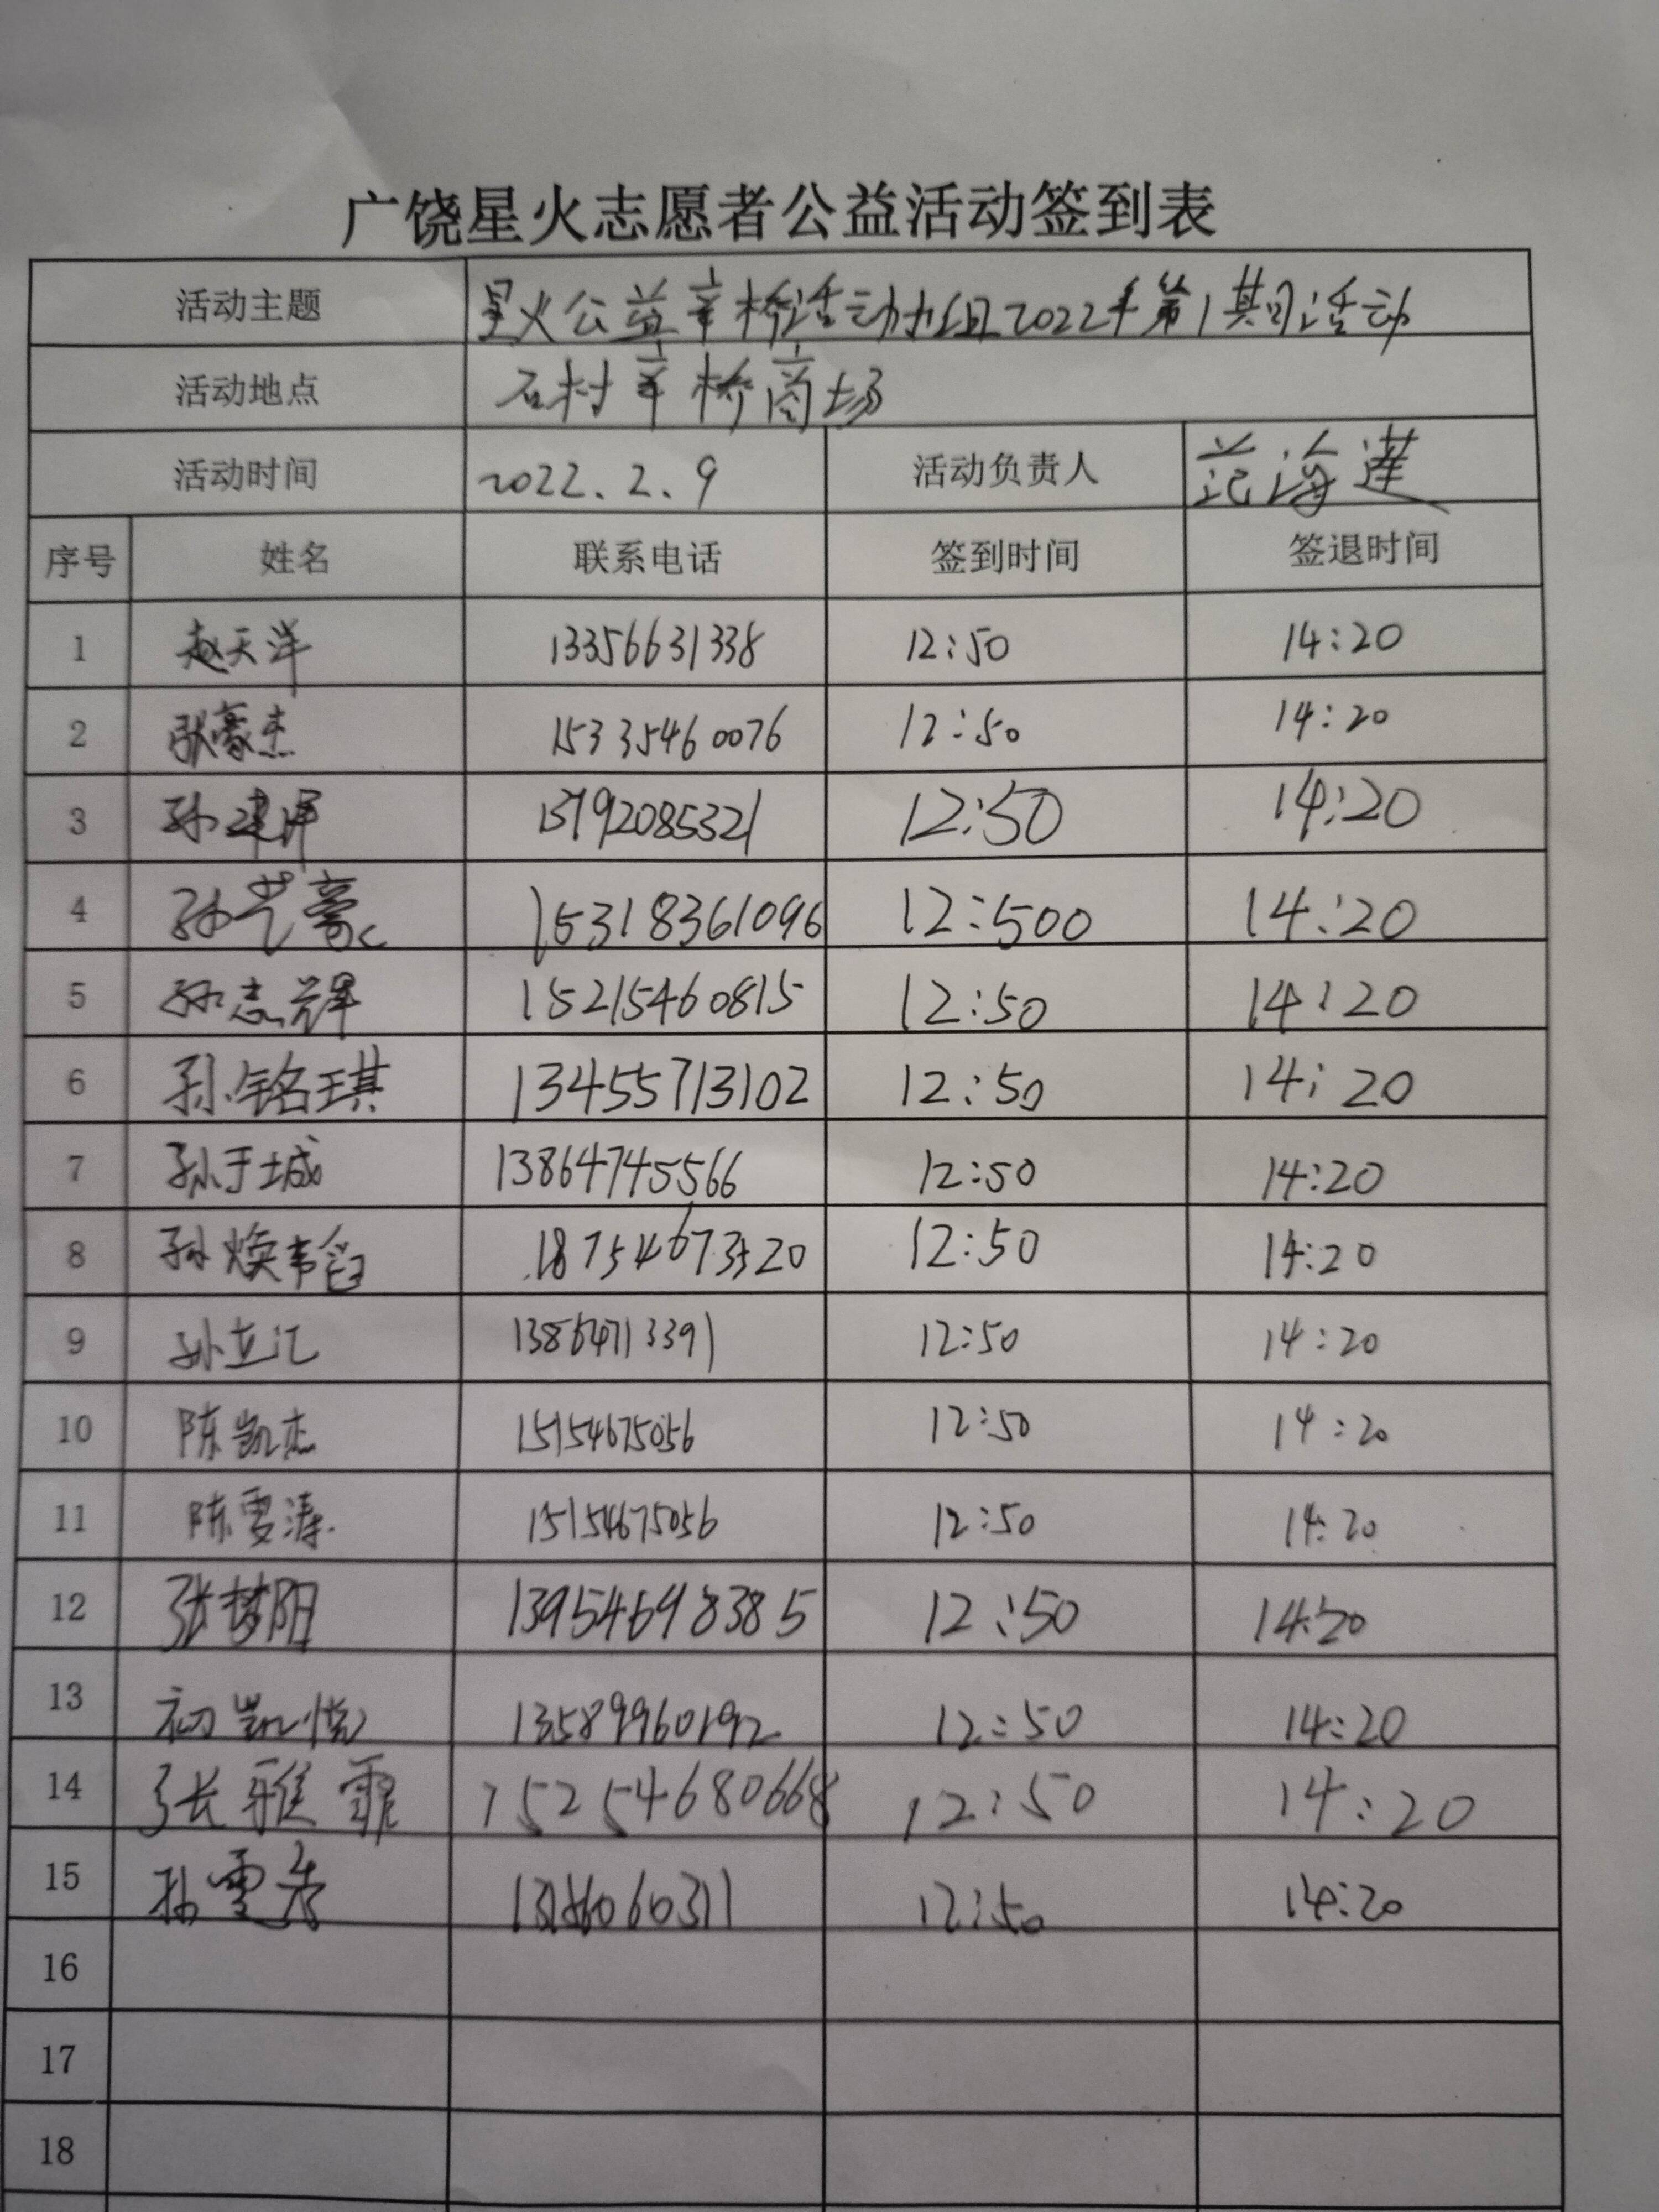 广饶星火志愿者公益活动签到表
活动主题 星火公益辛桥活动小组2022年第1期活动
活动地点 石村辛桥商场
活动时间 2022.2.9 活动负责人 范海莲
序号 姓名 联系电话 签到时间 签退时间
1 赵天洋 13356631338 12:50 14:20
2 张豪杰 15335460076 12:50 14:20
3 孙建泽 13792085321 12:50 14:20
4 孙艺豪 15318361096 12:500 14:20
5 孙志辉 15215460815 12:50 14:20
6 孙铭琪 13455713102 12:50 14:20
7 孙于城 13864745566 12:50 14:20
8 孙焕韬 12:50 14:20
9 孙立汇 13864713391 12:50 14:20
10 陈凯杰 15154675056 12:50 14:20
11 陈雯涛 15154675056 12:50 14:20
12 张梦阳 13954698385 12:50 14:20
13 初凯悦 13589960192 12:50 14:20
14 张雅霏 15254680668 12:50 14:20
15 孙雪 12:50 14:20
16
17
18